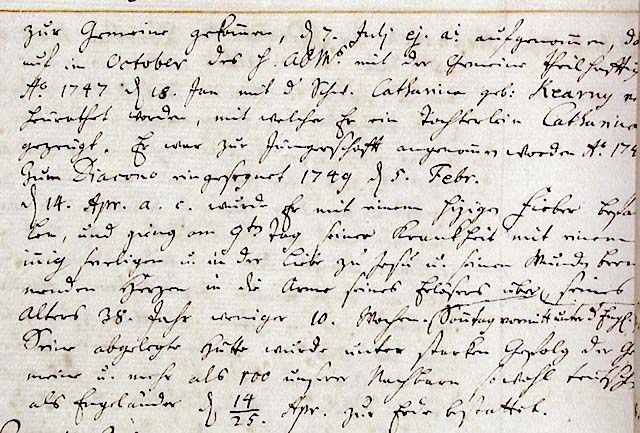 zur Gemeine gekommen, d 7. Julj ej. a. aufgenommen, d
auf in October des h. Abdm. mit der Gemeine theilhafftig
Aō 1747 d 18. Jan mit d Schw. Catharina geb: Kearny
heirathet worden, mit welcher Er ein Töchterlein Catharina
gezeugt. Er war zur Jüngerschafft angenommen worden Aō 174
zum Diacono eingesegnet 1749 d 5. Febr.
d 14. Apr. a. c. wurde Er mit einem hizigen Fieber befal
len, und ging am 9ten Tag seiner Krankheit mit einem
innig seeligen u. in der Liebe zu Jesu u. seinen Wunden bren
nenden Herzen in die Arme seines Erlösers über, seines
Alters 38. Jahr weniger 10. Wochen. Sonntag vormitt unter
Seine abgelegte Hütte wurde unter starken Gefolg der Ge
meine u. mehr als 100 unserer Nachbarn sowohl teutsche
als Engeländer d 14/25. Apr. zur Erde bestattet.